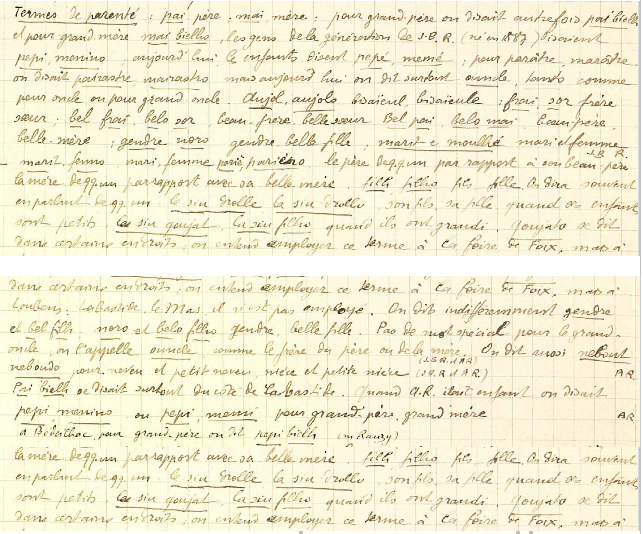 Termes de parenté : pai père, mai, mère ; pour grand-père on disait autrefois pai bielh
et pour grand-mère mai bielho, les gens de la génération de J.B.R. (né en 1887) disaient
pepi, menino ; aujourd'hui le enfants disent pepé, memé ; pour parâtre, marâtre
on disait pairastre mairastro mais aujourd'hui on dit surtout ouncle, tanto comme
pour oncle ou pour grand oncle. Aujol, aujolo bisaïeul, bisaïeule ; frai, sor frère
sœur ; bel frai, belo sor beau-frère, belle sœur Bel pai, belo mai beau père,
belle-mère ; gendre noro gendre, belle fille, marit e moulhé mari et femme
J.B.R.
marit, fenno mari, femme pariè, parièro le père de qq.un par rapport à son beau-père
la mère de qq.un par rapport avec sa belle mère. filh filho fils fille. On dira souvent
en parlant de qq.un le siu drolle la siu drollo, son fils, sa fille quand ses enfants
sont petits, le siu goujat, la siu filho quand ils ont grandi. Goujato se dit
dans certains endroits, on entend employer ce terme à la foire de Foix, mais à
dans certains endroits, on entend employer ce terme à la foire de Foix, mais à
Loubens, Labastide, le Mas, il n'est pas employé. On dit indifféremment gendre
et bel filh, noro et belo filho gendre, belle fille. Pas de mot spécial pour le grand-
oncle, on l'appelle ouncle, comme le frère du père ou de la mère. On dit aussi nebout
(J.B.R. et A.R)
neboudo pour neveu et petit neveu, nièce et petite nièce (J.B.R et A.R.) A.R.
Pai bielh se disait surtout du côté de Labastide. Quand A.R. était enfant on disait
pepi menino, ou pepi, memi pour grand-père, grand mère A.R
à Bédeilhac, pour grand-père on dit pepi bielh (m Rauzy)
la mère de qq.un par rapport avec sa belle mère. filh filho fils fille. On dira souvent
en parlant de qq.un le siu drolle la siu drollo, son fils, sa fille quand ses enfants
sont petits, le siu goujat, la siu filho quand ils ont grandi. Goujato se dit
dans certains endroits, on entend employer ce terme à la foire de Foix, mais à